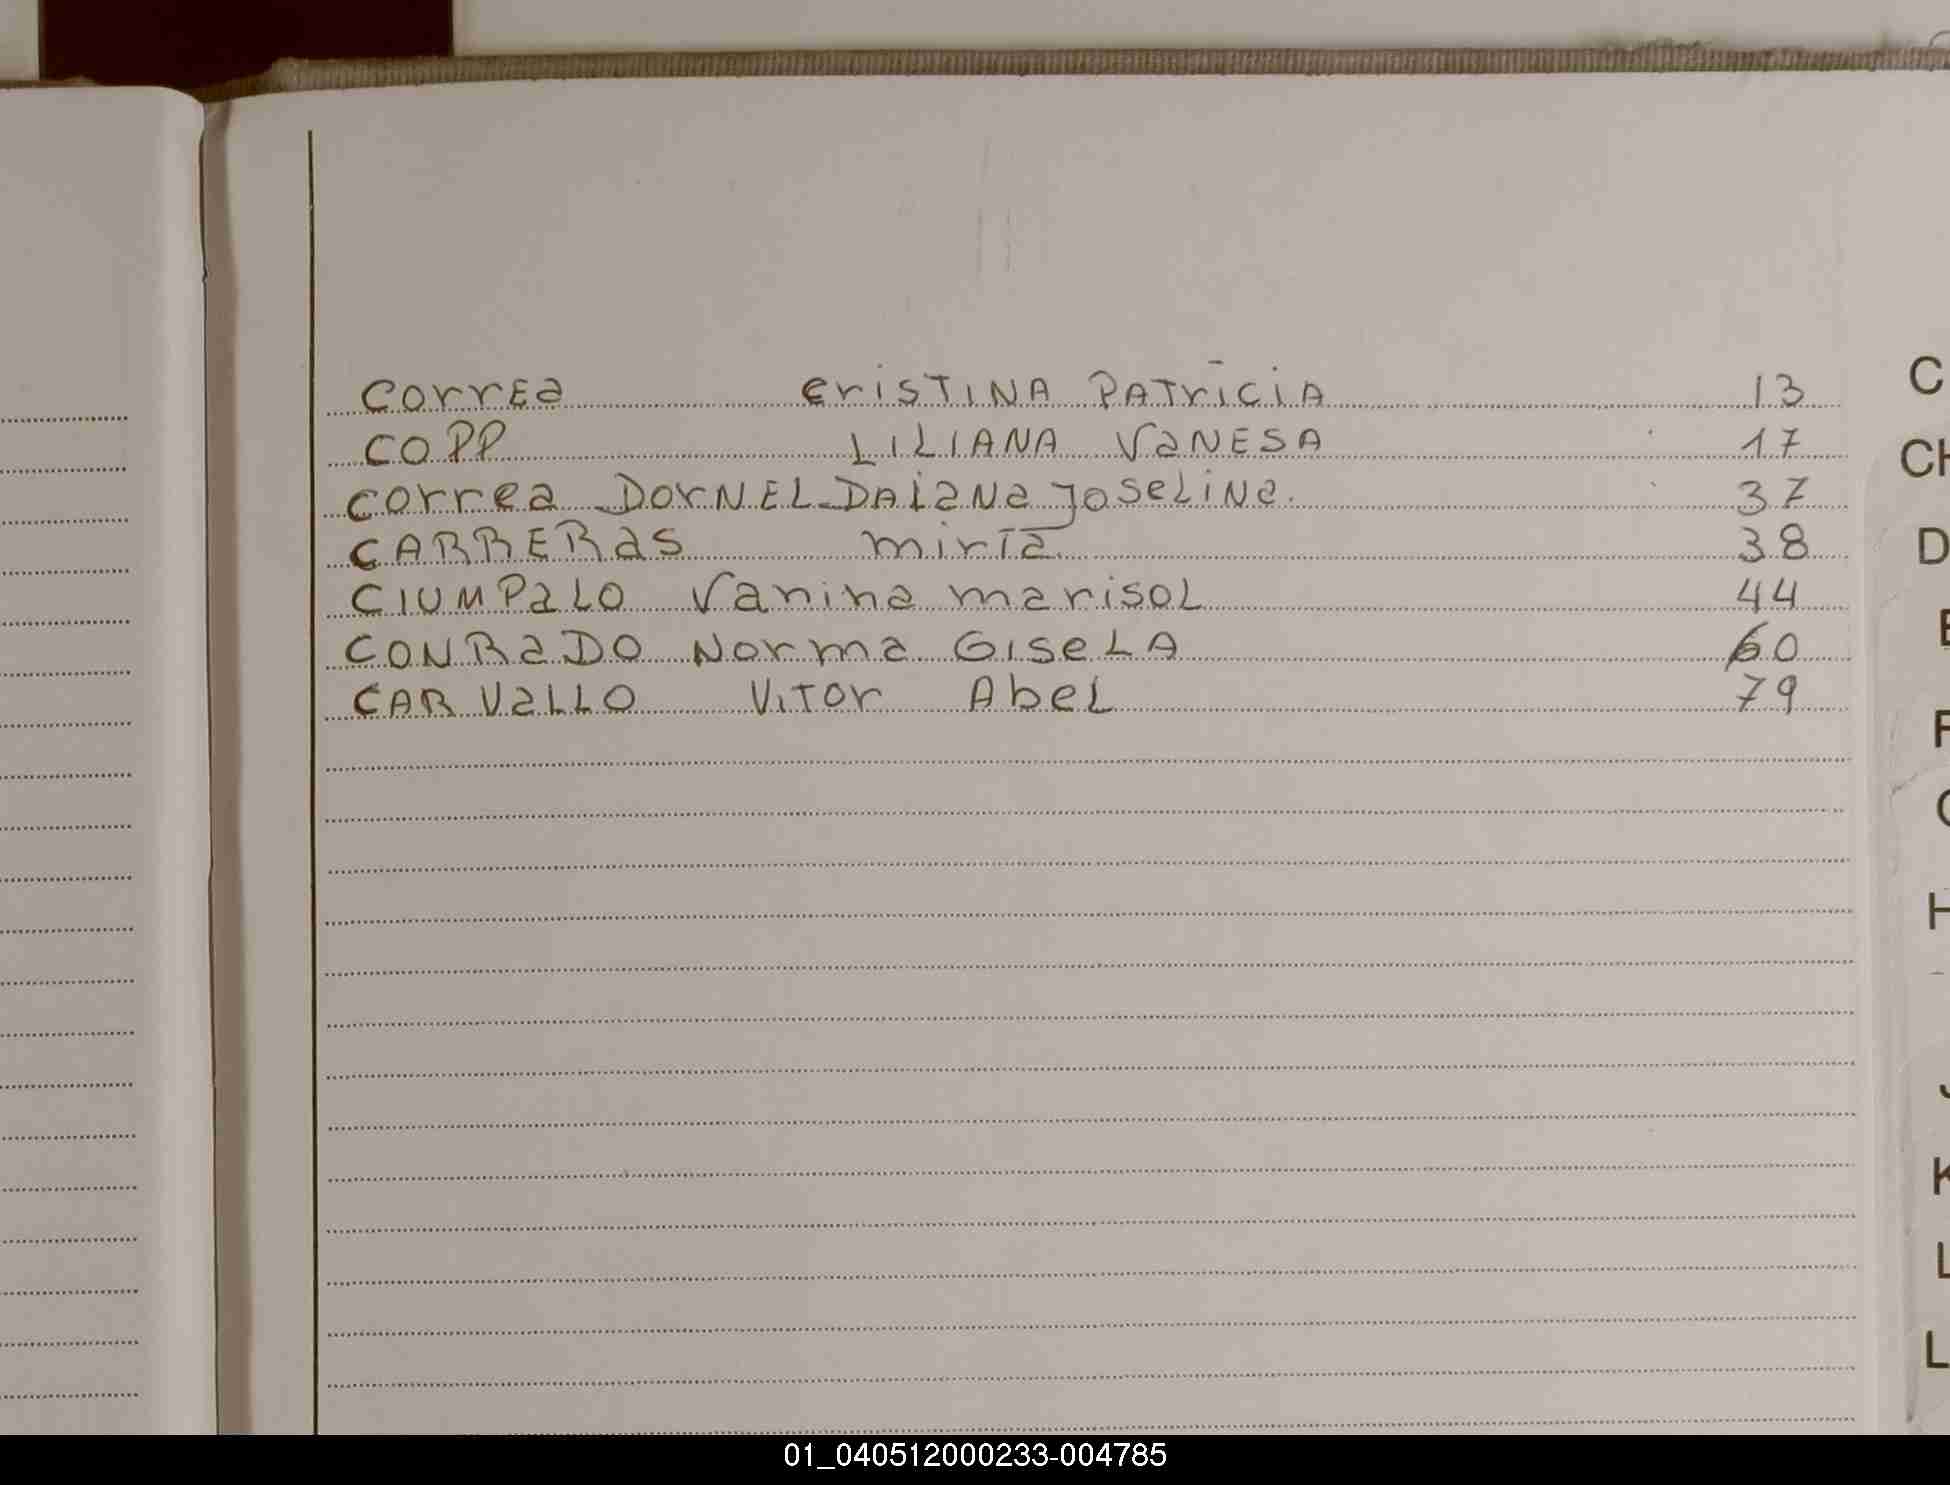 Correa Cristina Patricia 13
COPP LILIANA VANESA 17
Correa DORNEL DAIANA Joselina. 37
CARRERAS mirta 38
CIUMPALO Vanina marisol 44
CONRADO Norma GISELA 60
CARVALLO VITOR Abel 79
C
CH
D
E
F
G
H
J
K
L
L
01_040512000233-004785